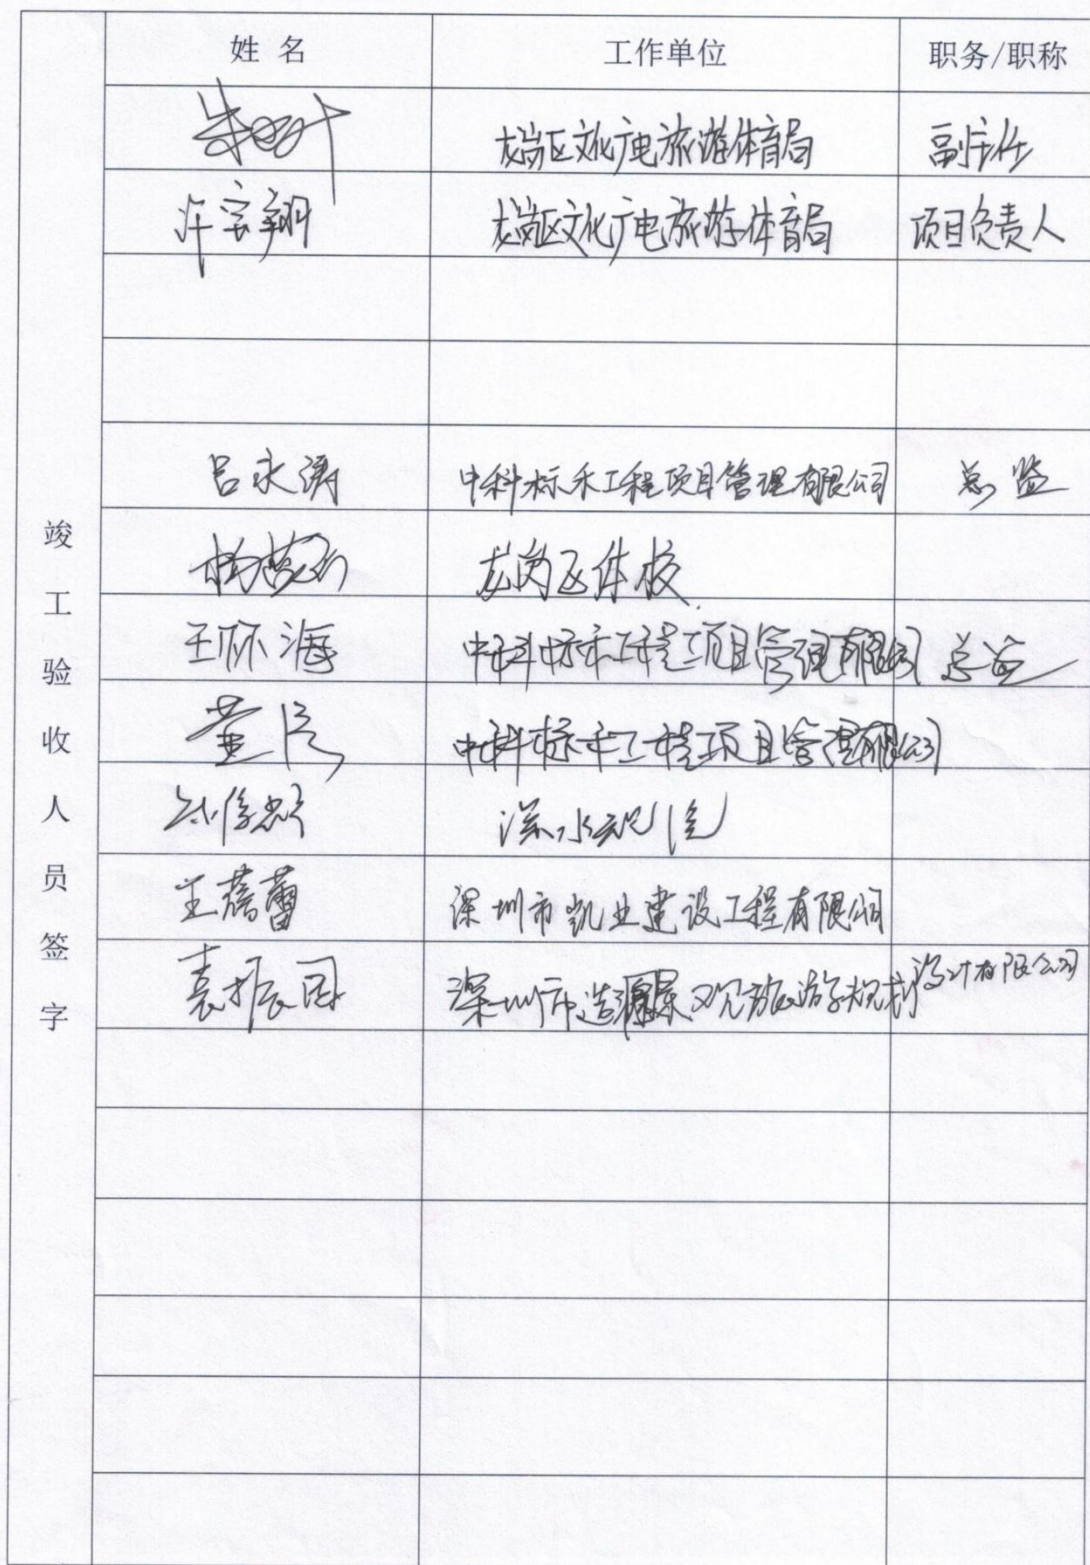 姓名 工作单位 职务/职称
龙岗区文化广电旅游体育局 副主任
许宏翔 龙岗区文化广电旅游体育局 项目负责人
吕永涛 中科标禾工程项目管理有限公司 总监
龙岗区体校
王怀海 中科标禾工程项目管理有限公司 总监
董 中科标禾工程项目管理有限公司
深水
王蓓蕾 深圳市凯业建设工程有限公司
袁振国 深圳市造源景观旅游规划设计有限公司
竣工验收人员签字